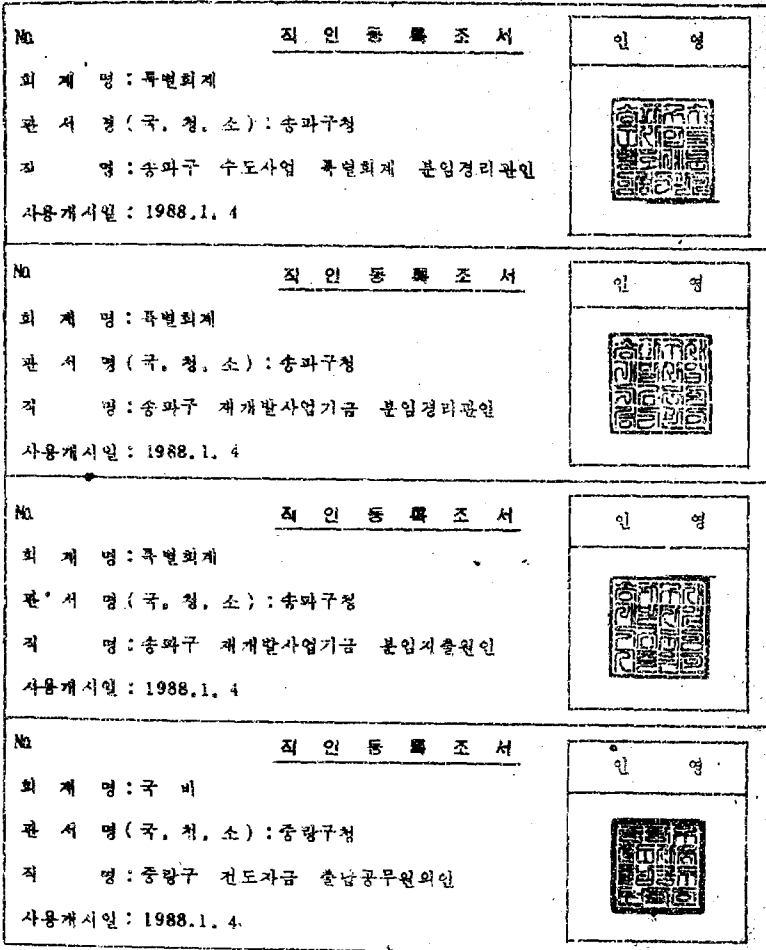 No. 직 인 등 록 조 서
인 영
회 계 명 : 특별회계
관 서 명 (국, 청, 소) : 송파구청
직 명 : 송파구 수도사업 특별회계 분임경리관인
사용개시일 : 1988. 1. 4
No. 직 인 등 록 조 서
인 영
회 계 명 : 특별회계
관 서 명 (국, 청, 소) : 송파구청
직 명 : 송파구 재개발사업기금 분임경리관인
사용개시일 : 1988. 1. 4
No. 직 인 등 록 조 서
인 영
회 계 명 : 특별회계
관 서 명 (국, 청, 소) : 송파구청
직 명 : 송파구 재개발사업기금 분임지출원인
사용개시일 : 1988. 1. 4
No. 직 인 등 록 조 서
인 영
회 계 명 : 국 비
관 서 명 (국, 청, 소) : 중랑구청
직 명 : 중랑구 전도자금 출납공무원의인
사용개시일 : 1988. 1. 4.